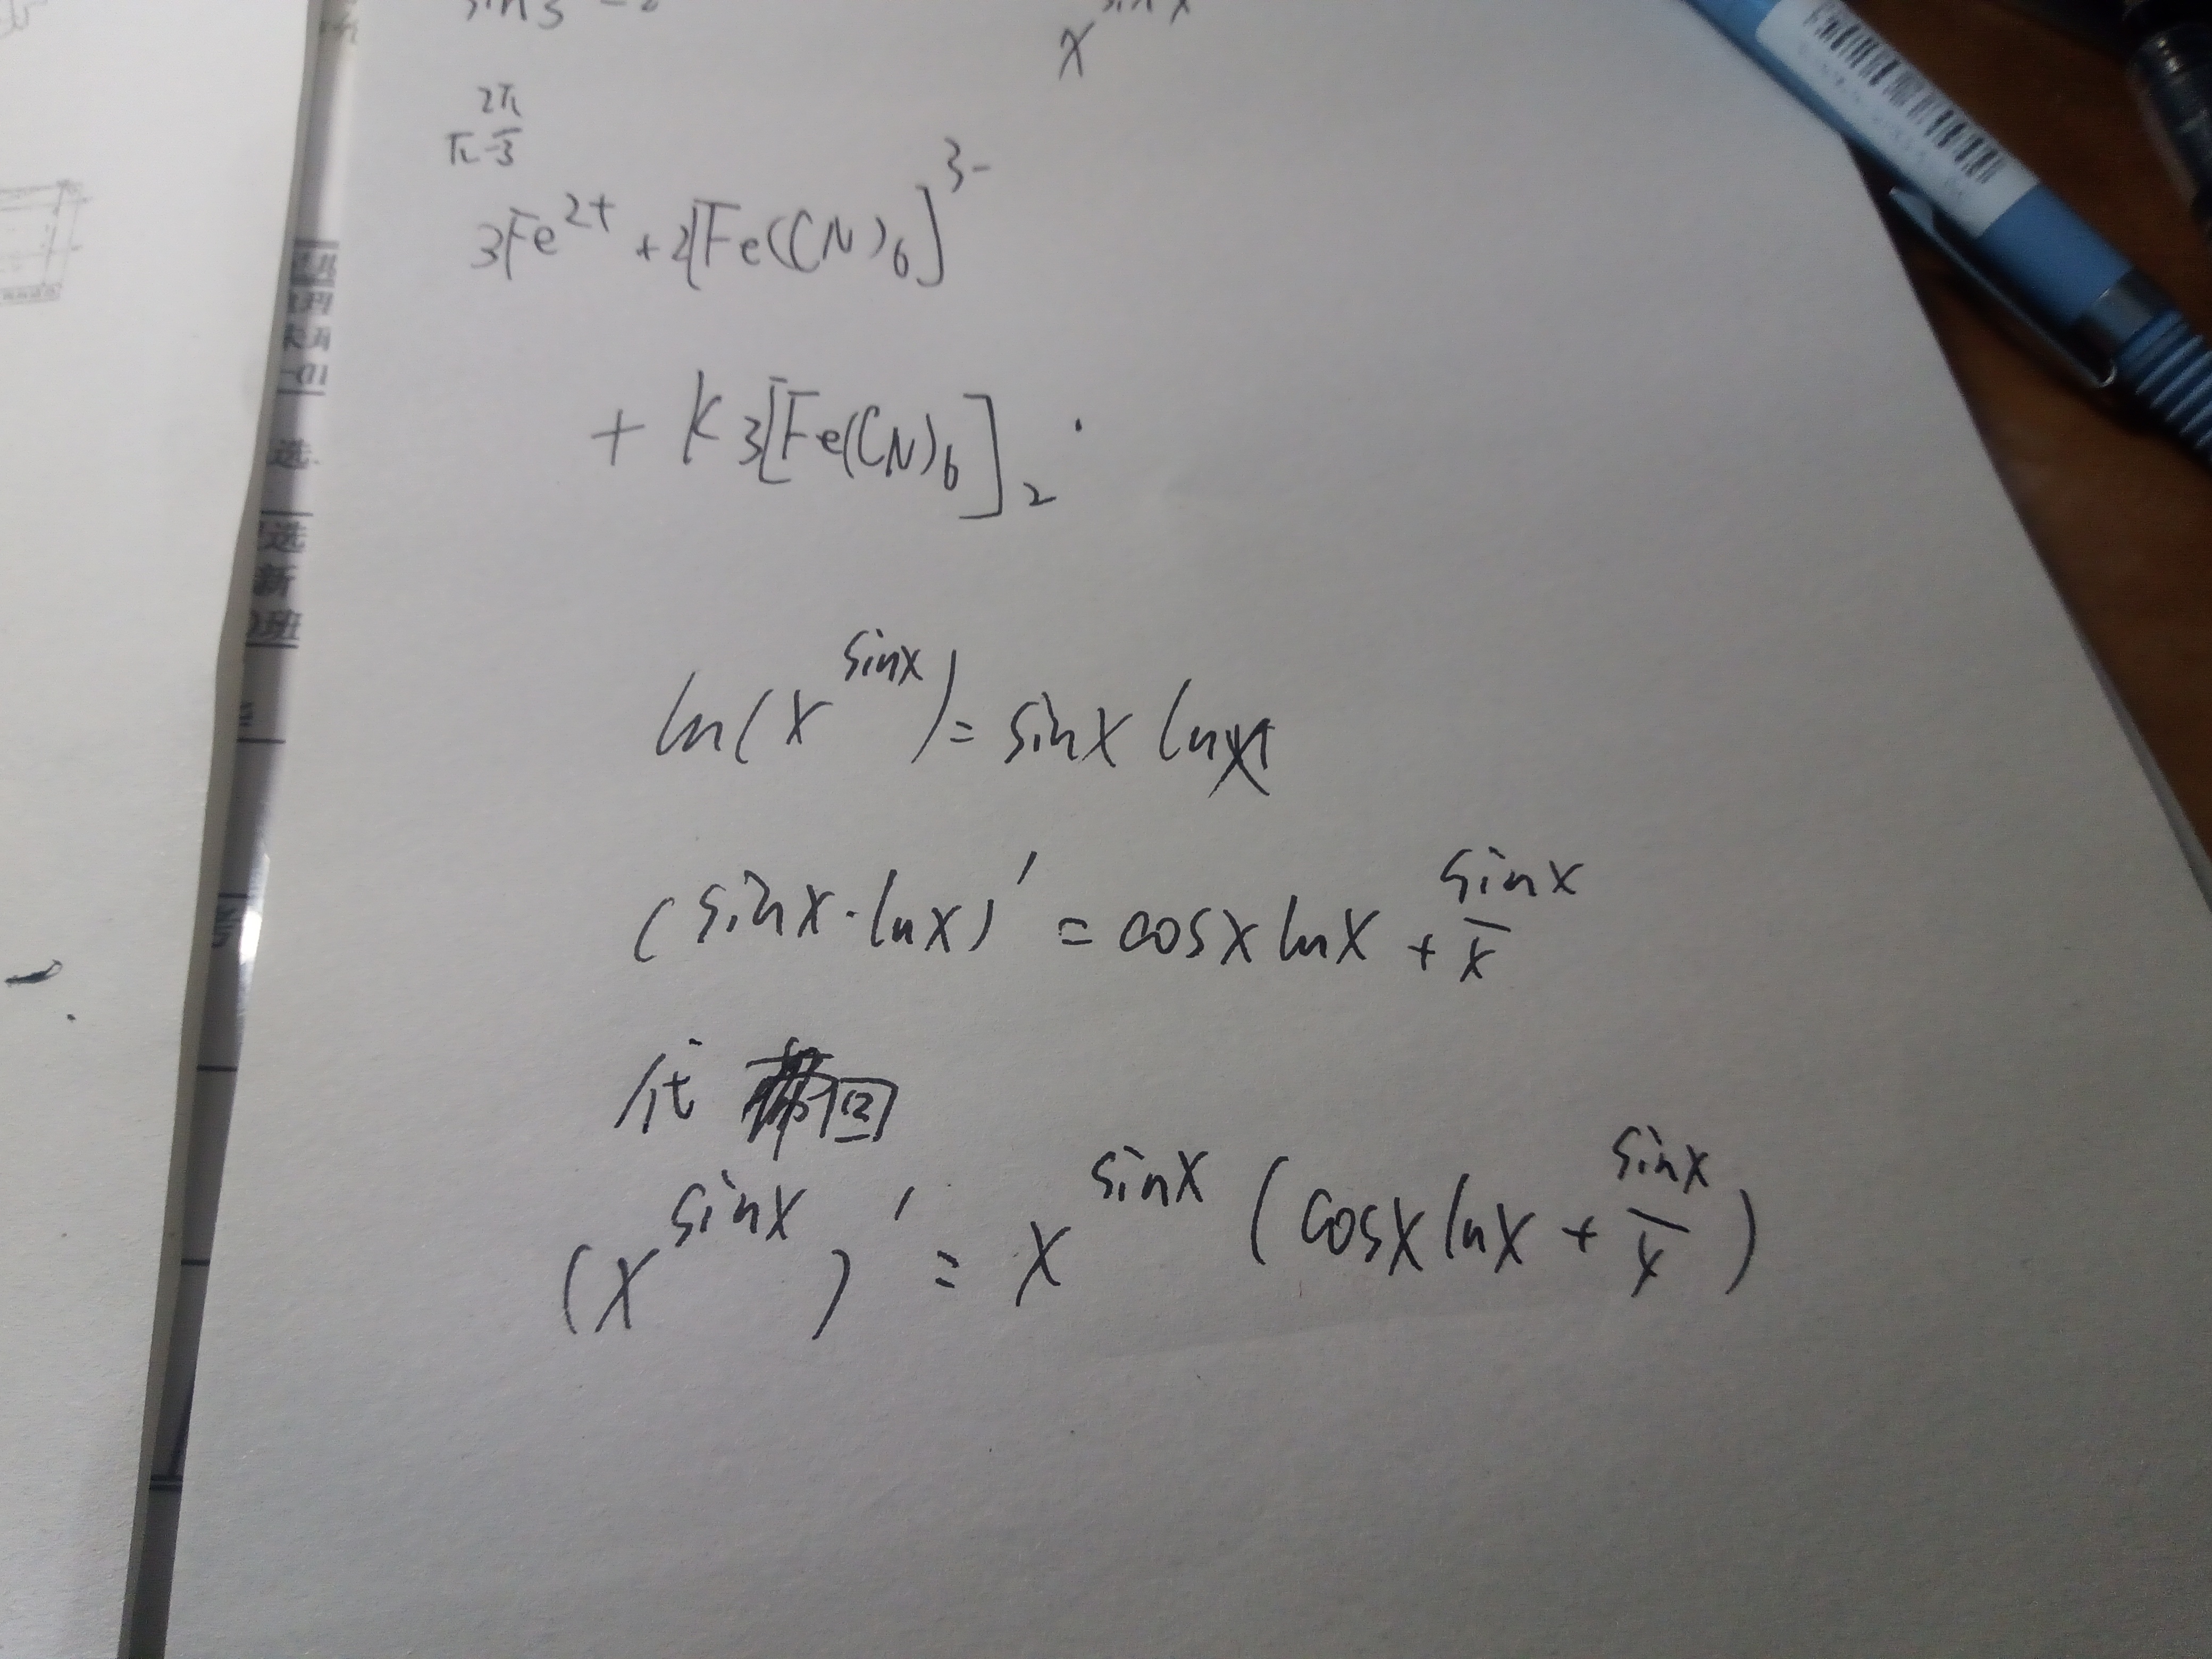 x^{sin x}
2π
π-3
3Fe²⁺ + 2[Fe(CN)₆]³⁻
+ K3[Fe(CN)₆]₂ ·
ln(x^{sinx}) = sinx lnx
(sinx·lnx)' = cosx lnx + \frac{sinx}{x}
代回
(x^{sinx})' = x^{sinx} (cosx lnx + \frac{sinx}{x})
-01
选
选
新
班
号